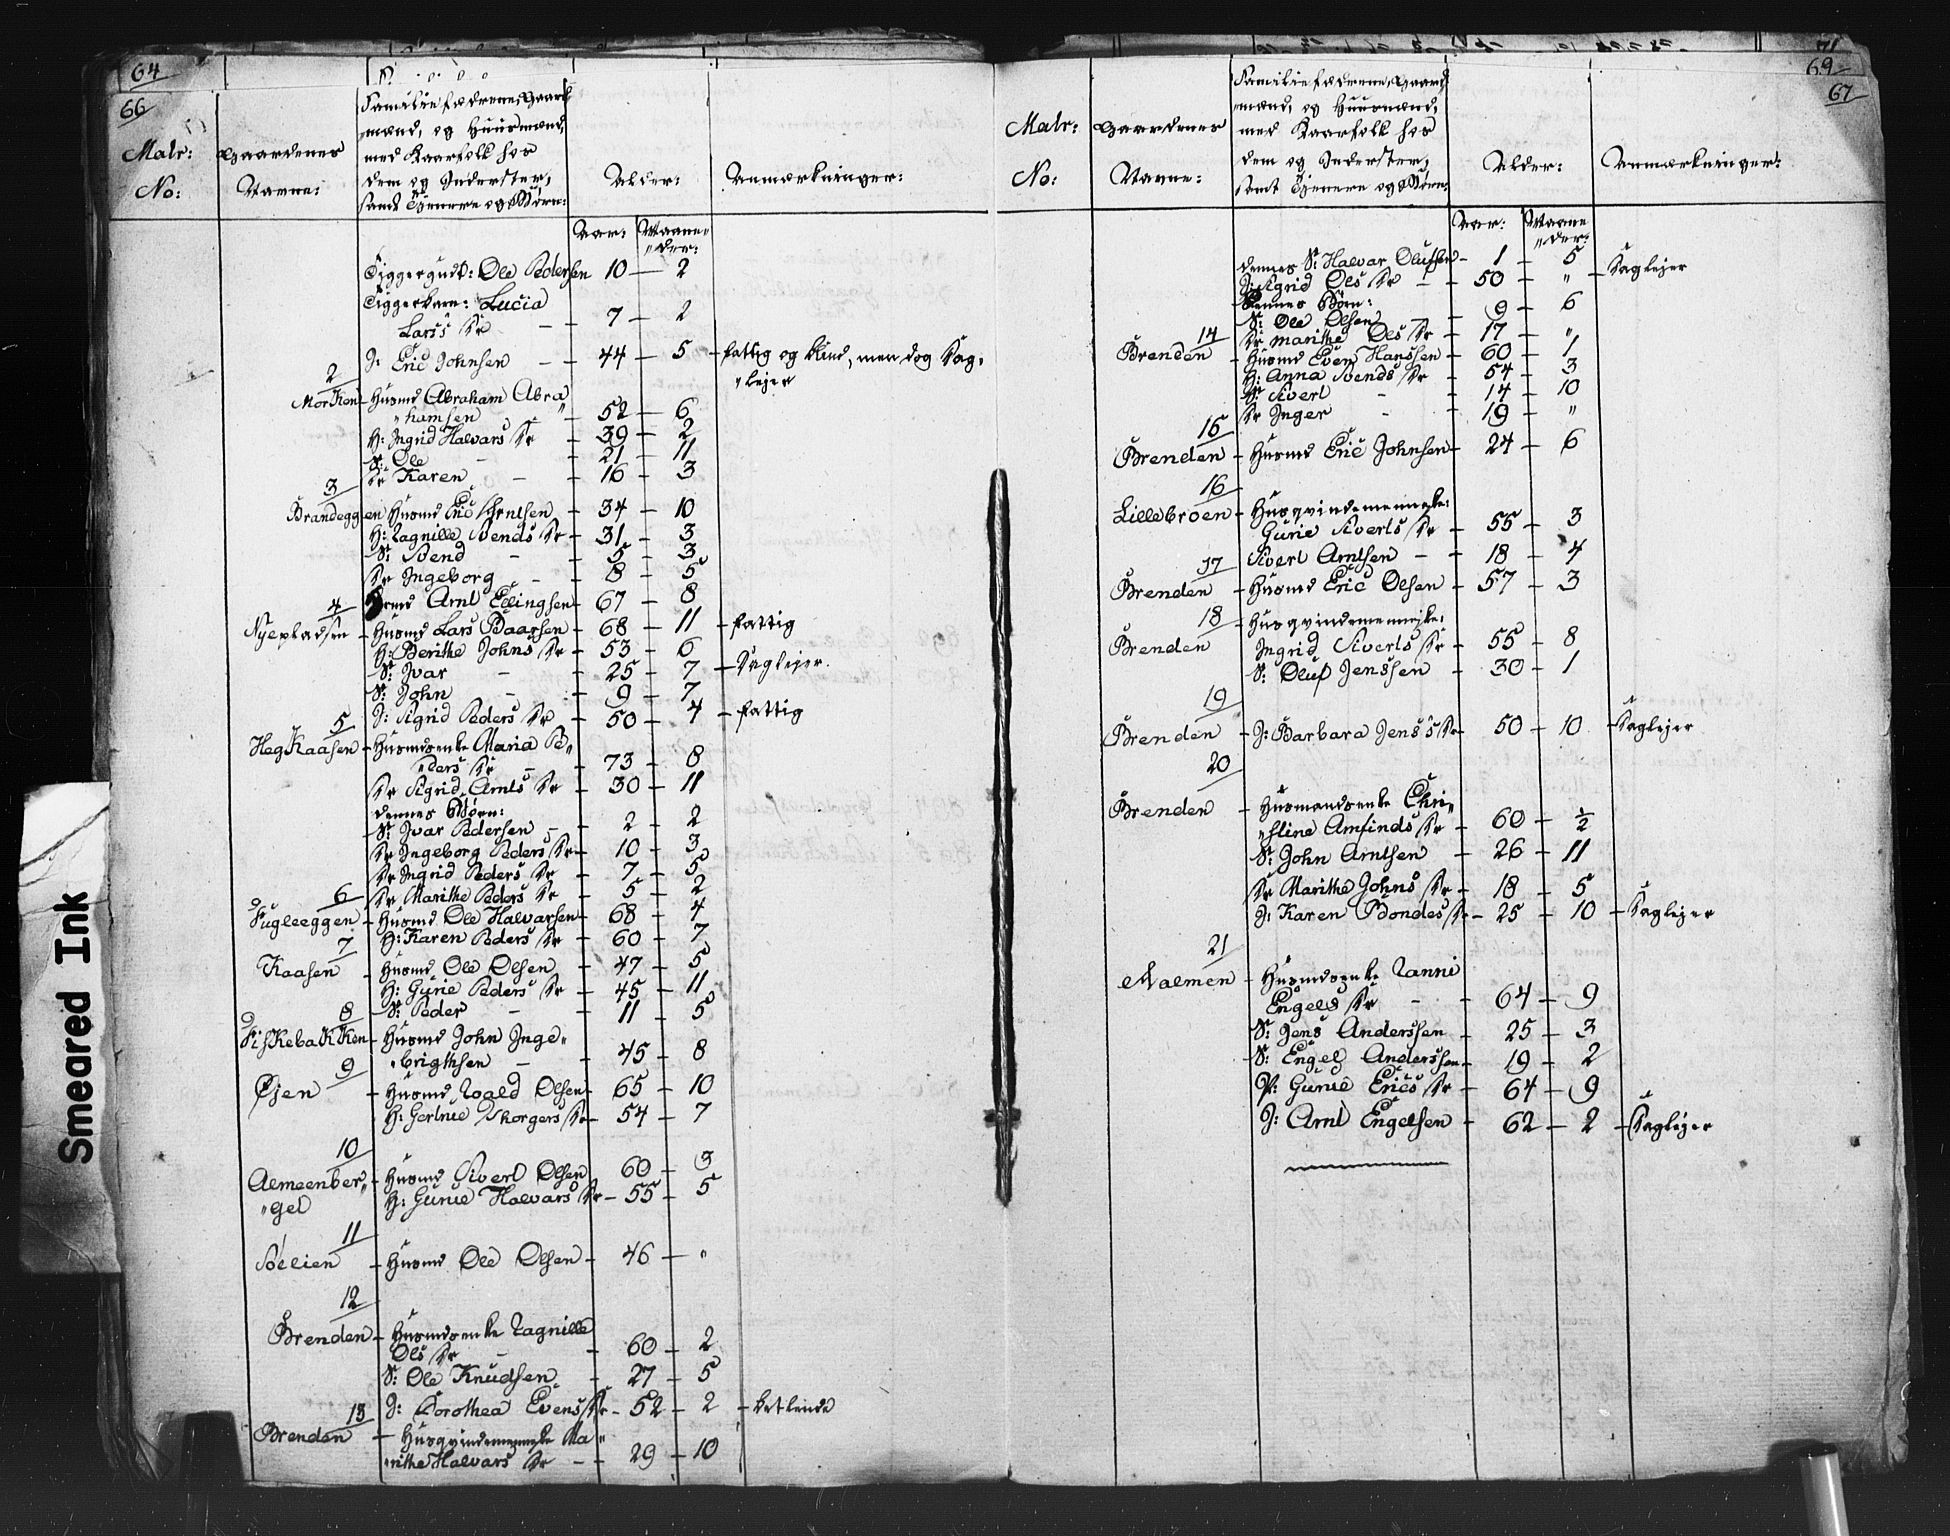 64
66
Matr:
No:
Gaardenes
Navne:
Familiefædrene, Gaard
mænd, og Huusmænd,
med Kaarfolk hos
dem og Inderster,
samt Tjenere og Børn:
Alder:
Anmærkninger:
Aar: Maane„
„der:
Tiggergudt: Ole Pedersen 10 — 2
Tiggerbarn: Lucia
Larss Dr — 7 — 2
J: Eric Johnsen — 44 — 5 — fattig og blind, men dog Sag„
„lejer
2
Morken — Husmd Abraham Abra„
„hamsen 52 — 6
H: Ingrid Halvars Dr — 39 — 2
S: Ole — 21 — 11
Dr Karen — 16 — 3
3
Brandeggen Husmd Eric Arntsen — 34 — 10
H: Ragnille Svends Dr — 31 — 3
S: Svend — 5 — 3
Dr Ingeborg — 8 — 5
Arnt Ellingsen — 67 — 8
4
Nyepladsen — Husmd Lars Baarsen — 68 — 11 — fattig
H: Berithe Johns Dr — 53 — 6
S: Ivar — 25 — 7 — Saglejer.
S: John — 9 — 7
J: Sigrid Peders Dr — 50 — 4 — fattig
5
HegKaasen — Husmdsenke Maria Pe„
„ders Dr — 73 — 8
Dr Sigrid Arnts Dr — 30 — 11
dennes Børn:
S: Ivar Pedersen — 2 — 2
Dr Ingeborg Peders Dr — 10 — 3
Dr Ingrid Peders Dr — 7 — 5
Dr Marithe Peders Dr — 5 — 2
6
Fugleeggen — Husmd Ole Halvarsen — 68 — 4
H: Karen Peders Dr — 60 — 7
7
Kaasen — Husmd Ole Olsen — 47 — 5
H: Gurie Peders Dr — 45 — 11
S: Peder — 11 — 5
8
FiskebakKen — Husmd John Inge„
„brigthsen — 45 — 8
9
Øien — Husmd Roald Olsen — 65 — 10
H: Gertrue Thorgers Dr — 54 — 7
10
Almeenber„
„get — Husmd Sivert Olsen 60 — 3
H: Gurie Halvars Dr — 55 — 5
11
Sølien — Husmd Ole Olsen — 46 — „
12
Brenden — Husmdsenke Ragnille
Ols Dr — 60 — 2
S: Ole Knudsen — 27 — 5
J: Dorothea Evens Dr — 52 — 2 — betlende
13
Brenden — Husqvindemenneske Ma„
„rithe Halvars Dr — 29 — 10
71
69
67
Matr:
No:
Gaardenes
Navne:
Familiefædrene, Gaard
mænd, og Huusmænd,
med Kaarfolk hos
dem og Inderster,
samt Tjenere og Børn:
Alder:
Anmærkninger:
Aar: Maane
„der:
dennes S: Halvar Olufsen — 1 — 5
J: Sigrid Ols Dr — 50 — „ — Saglejer
dennes Børn:
S: Ole Olsen — 9 — 6
Dr Marithe Ols Dr — 17 — „
14
Brenden — Husmd Even Hanssen — 60 — 1
H: Anna Svends Dr — 54 — 3
S: Sivert — 14 — 10
Dr Inger — 19 — „
15
Brenden — Husmd Eric Johnsen — 24 — 6
16
Lillebroen — Husqvindemenneske:
Gurie Siverts Dr — 55 — 3
Sivert Arntsen — 18 — 4
17
Brenden — Husmd Eric Olsen — 57 — 3
18
Brenden — Husqvindemenneske:
Ingrid Siverts Dr — 55 — 8
S: Oluf Jenssen — 30 — 1
19
Brenden — J: Barbara Jens's Dr — 50 — 10 — Saglejer
20
Brenden — Husmandsenke Chri„
„stine Amfinds Dr — 60 — ½
S: John Arntsen — 26 — 11
Dr Marithe Johns Dr — 18 — 5
J: Karen Bondes Dr — 25 — 10 — Saglejer
21
Malmen — Husmdsenke Ranni
Engels Dr — 64 — 9
S: Jens Anderssen — 25 — 3
S: Engel Anderssen — 19 — 2
P: Gurie Erics Dr — 64 — 9
J: Arnt Engelsen — 62 — 2 — Saglejer
Smeared Ink